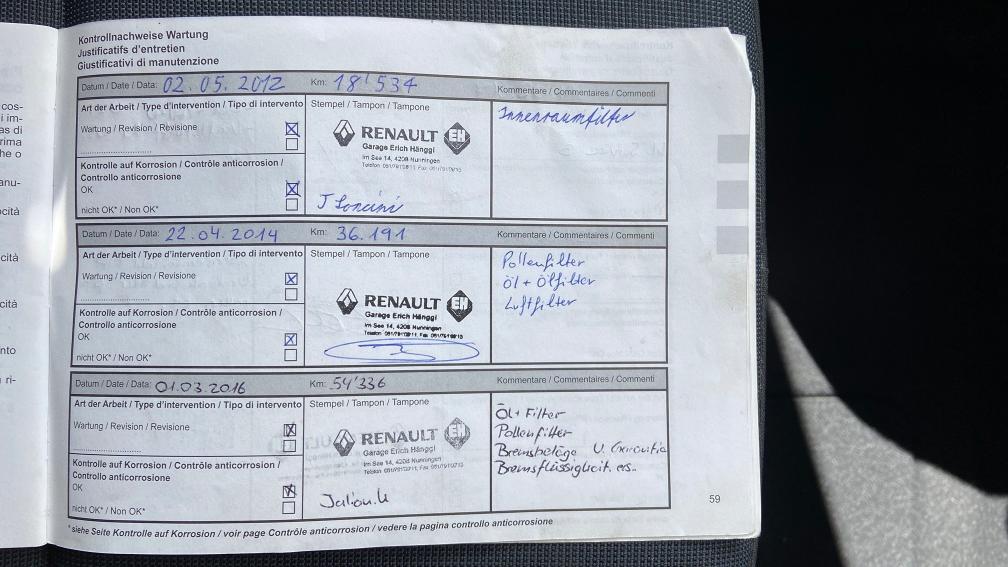 cos-
i im-
as di
rima
he o
anu-
ocità
cità
cità
nto
ri-
Kontrollnachweise Wartung
Justificatifs d'entretien
Giustificativi di manutenzione
Datum / Date / Data: 02.05.2012 Km: 18'534 Kommentare / Commentaires / Commenti
Art der Arbeit / Type d'intervention / Tipo di intervento Stempel / Tampon / Tampone Innenraumfilter
Wartung / Revision / Revisione
RENAULT EH
Garage Erich Hänggi
Im See 14, 4208 Nunningen
Kontrolle auf Korrosion / Contrôle anticorrosion /
Controllo anticorrosione
OK
nicht OK* / Non OK*
Datum / Date / Data: 22.04.2014 Km: 36.191 Kommentare / Commentaires / Commenti
Art der Arbeit / Type d'intervention / Tipo di intervento Stempel / Tampon / Tampone Pollenfilter
Wartung / Revision / Revisione Öl + Ölfilter
RENAULT EH Luftfilter
Garage Erich Hänggi
Im See 14, 4208 Nunningen
Kontrolle auf Korrosion / Contrôle anticorrosion /
Controllo anticorrosione
OK
nicht OK* / Non OK*
Datum / Date / Data: 01.03.2016 Km: 54'336 Kommentare / Commentaires / Commenti
Art der Arbeit / Type d'intervention / Tipo di intervento Stempel / Tampon / Tampone Öl + Filter
Wartung / Revision / Revisione Pollenfilter
RENAULT EH Bremsbeläge
Garage Erich Hänggi Bremsflüssigkeit ers.
Im See 14, 4208 Nunningen
Kontrolle auf Korrosion / Contrôle anticorrosion /
Controllo anticorrosione
OK
nicht OK* / Non OK*
59
*siehe Seite Kontrolle auf Korrosion / voir page Contrôle anticorrosion / vedere la pagina controllo anticorrosione